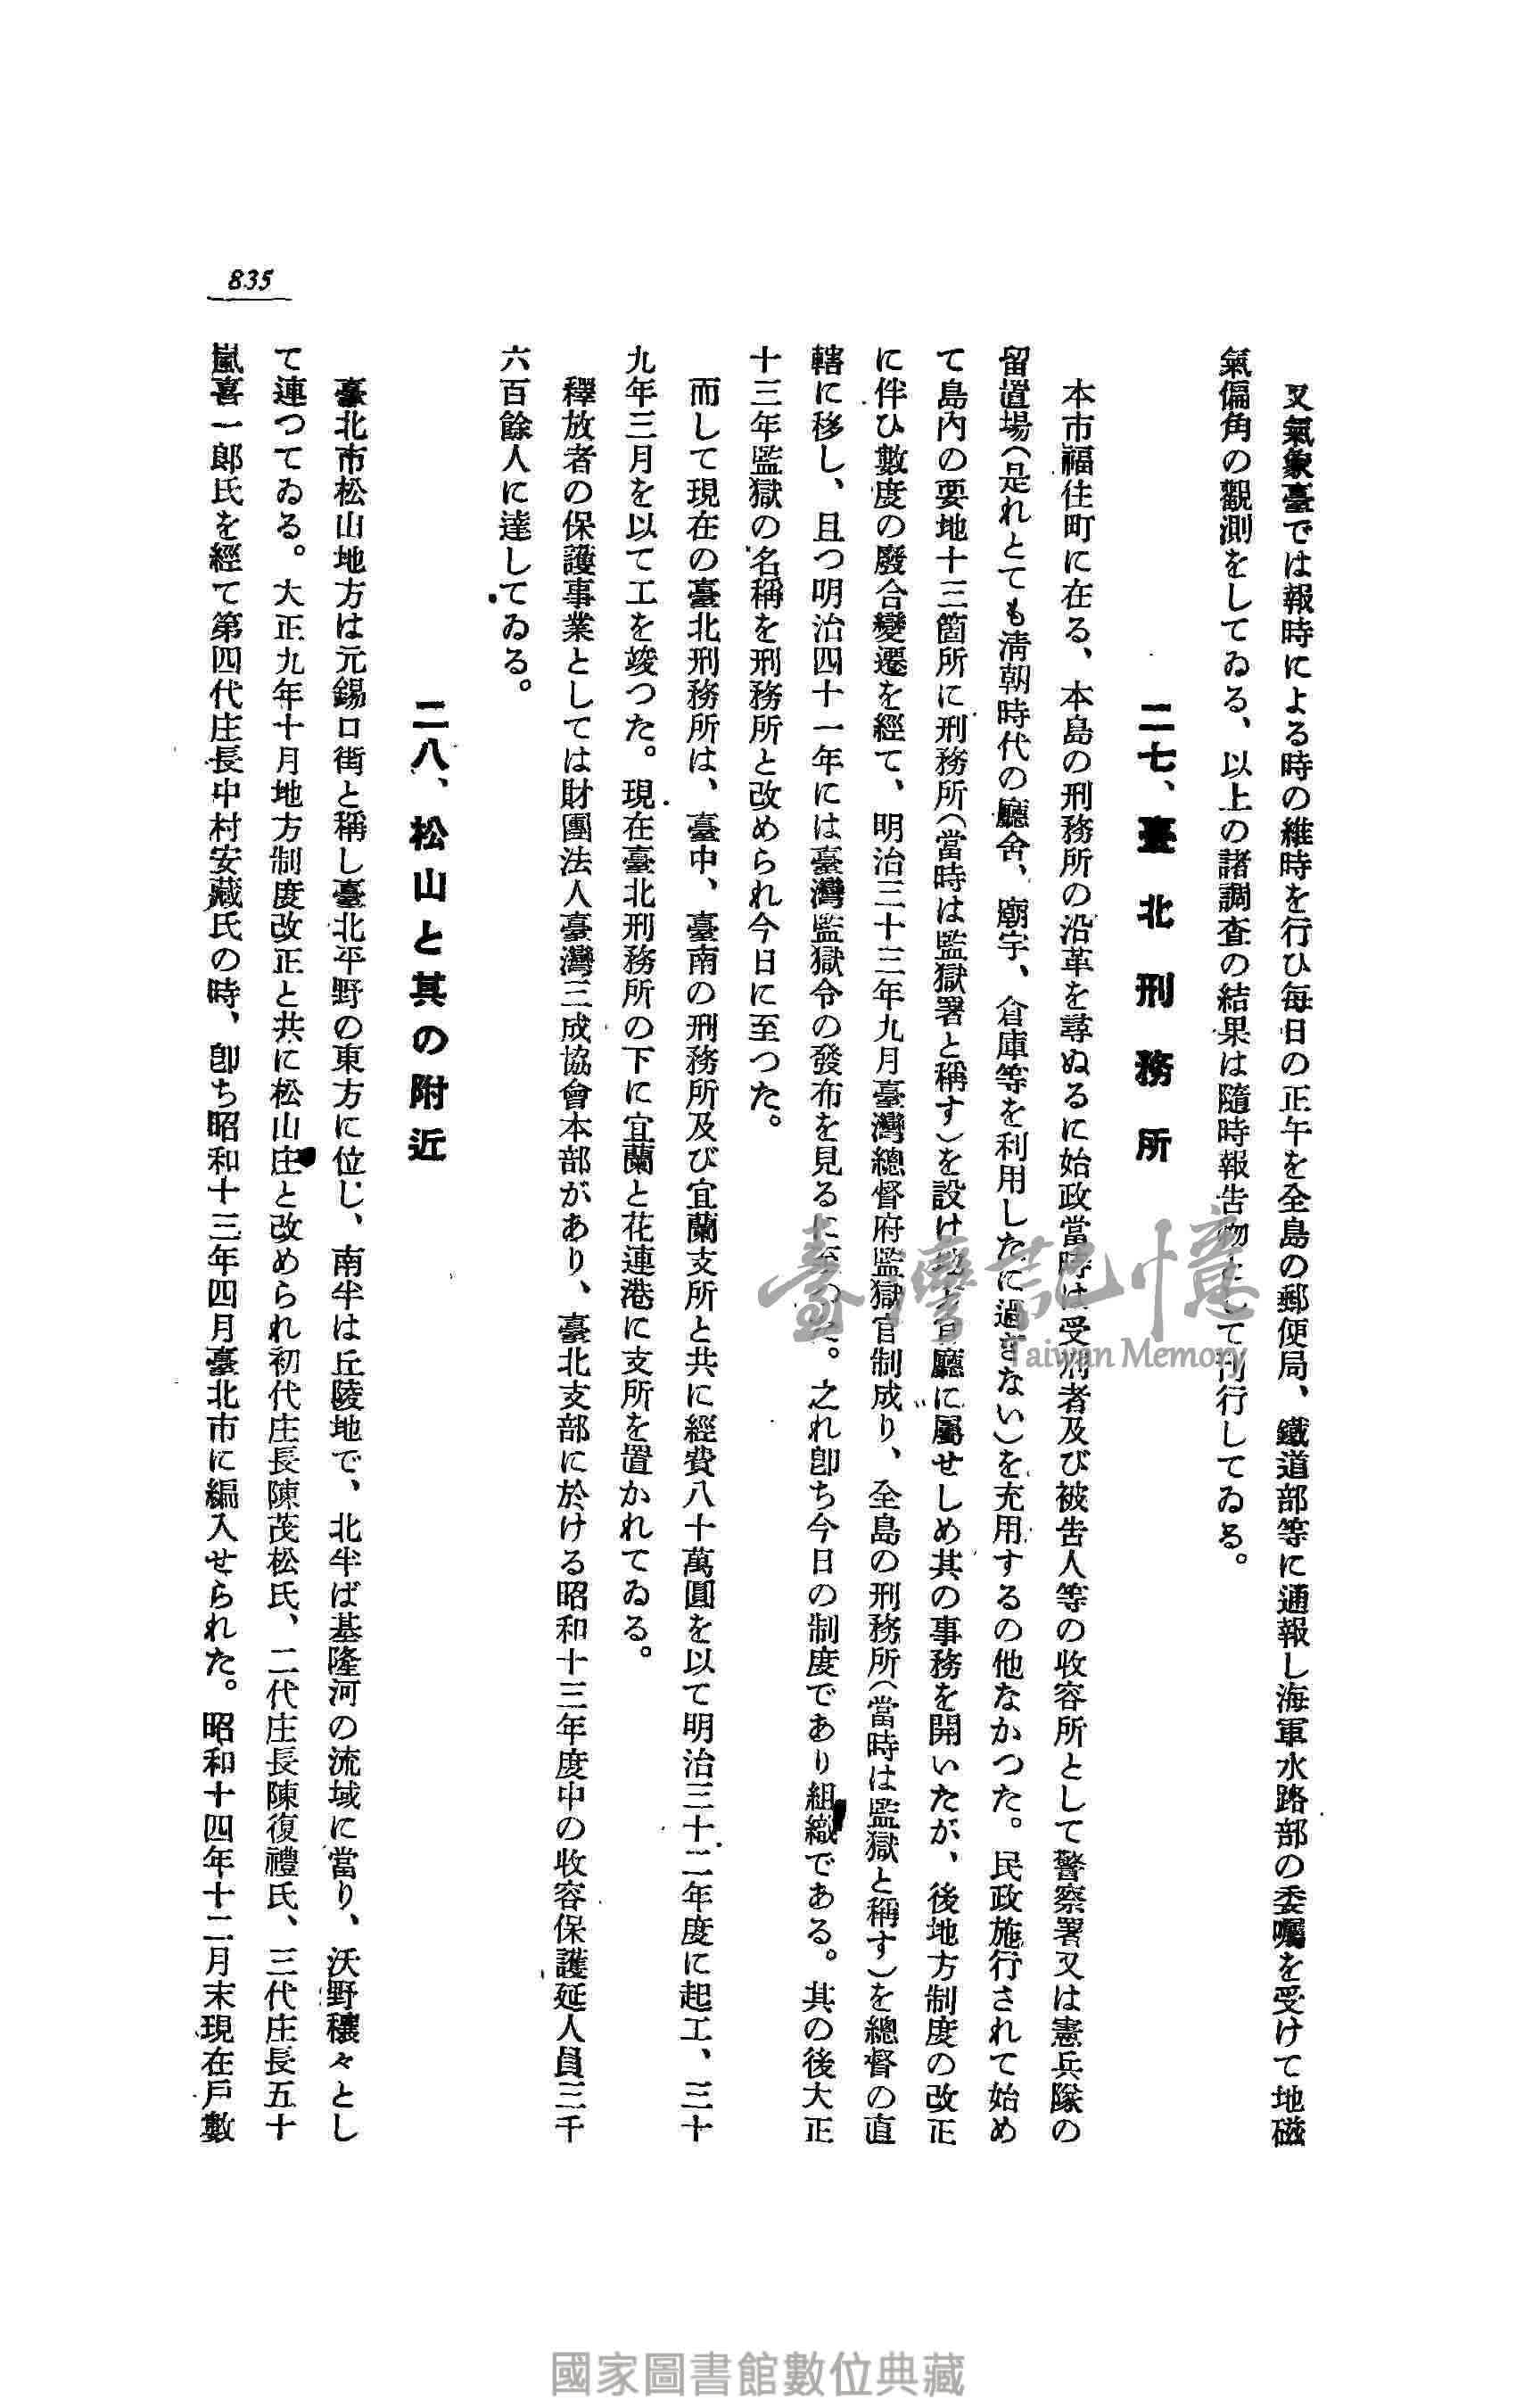 835
又氣象臺では報時による時の維時を行ひ每日の正午を全島の郵便局、鐵道部等に通報し海軍水路部の委囑を受けて地磁
氣偏角の觀測をしてゐる、以上の諸調査の結果は隨時報告物として刊行してゐる。
二七、臺北刑務所
本市福住町に在る、本島の刑務所の沿革を尋ぬるに始政當時は受刑者及び被告人等の收容所として警察署又は憲兵隊の
留置場(是れとても淸朝時代の廳舍、廟宇、倉庫等を利用したに過ぎない)を充用するの他なかつた。民政施行されて始め
て島內の要地十三箇所に刑務所(當時は監獄署と稱す)を設け地方官廳に屬せしめ其の事務を開いたが、後地方制度の改正
に伴ひ數度の廢合變遷を經て、明治三十三年九月臺灣總督府監獄官制成り、全島の刑務所(當時は監獄と稱す)を總督の直
轄に移し、且つ明治四十一年には臺灣監獄令の發布を見るに至つた。之れ卽ち今日の制度であり組織である。其の後大正
十三年監獄の名稱を刑務所と改められ今日に至つた。
而して現在の臺北刑務所は、臺中、臺南の刑務所及び宜蘭支所と共に經費八十萬圓を以て明治三十二年度に起工、三十
九年三月を以て工を竣つた。現在臺北刑務所の下に宜蘭と花連港に支所を置かれてゐる。
釋放者の保護事業としては財團法人臺灣三成協會本部があり、臺北支部に於ける昭和十三年度中の收容保護延人員三千
六百餘人に達してゐる。
二八、松山と其の附近
臺北市松山地方は元錫口街と稱し臺北平野の東方に位じ、南半は丘陵地で、北半ば基隆河の流域に當り、沃野穰々とし
て連つてゐる。大正九年十月地方制度改正と共に松山庄と改められ初代庄長陳茂松氏、二代庄長陳復禮氏、三代庄長五十
嵐喜一郎氏を經て第四代庄長中村安藏氏の時、卽ち昭和十三年四月臺北市に編入せられた。昭和十四年十二月末現在戶數
臺灣記憶
Taiwan Memory
國家圖書館數位典藏